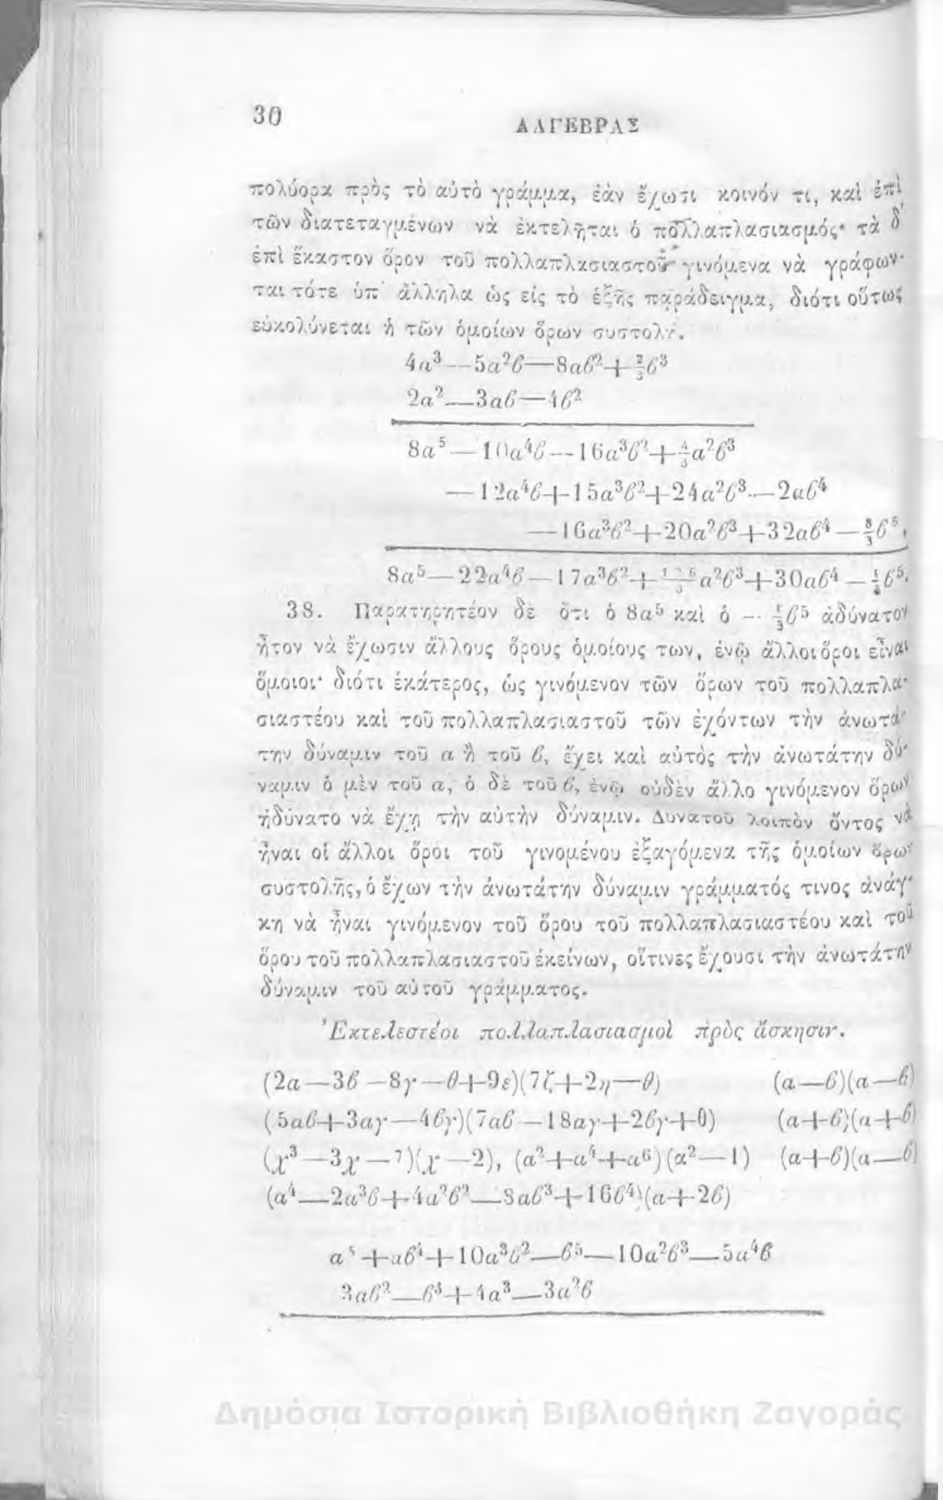 30
ΑΛΓΕΒΡΑΣ
πολύορα πρὸς τὸ αὐτὸ γράμμα, ἐὰν ἔχωσι κοινόν τι, καὶ ἐπὶ
τῶν διατεταγμένων νὰ ἐκτελῆται ὁ πολλαπλασιασμός· τὰ δ'
ἐπὶ ἕκαστον ὅρον τοῦ πολλαπλασιαστοῦ γινόμενα νὰ γράφων-
ται τότε ὑπ' ἄλληλα ὡς εἰς τὸ ἑξῆς παράδειγμα, διότι οὕτως
εὐκολύνεται ἡ τῶν ὁμοίων ὅρων συστολή.
4α³—5α²β—8αβ²+⅔β³
2α²—3αβ—4β²
8α⁵—10α⁴β—16α³β²+4/3α²β³
—12α⁴β+15α³β²+24α²β³—2αβ⁴
—16α³β²+20α²β³+32αβ⁴—8/3β⁵.
8α⁵—22α⁴β—17α³β²+ α²β³+30αβ⁴— β⁵.
38. Παρατηρητέον δὲ ὅτι ὁ 8α⁵ καὶ ὁ — β⁵ ἀδύνατον
ἦτον νὰ ἔχωσιν ἄλλους ὅρους ὁμοίους των, ἐνῷ ἄλλοι ὅροι εἶναι
ὅμοιοι· διότι ἑκάτερος, ὡς γινόμενον τῶν ὅρων τοῦ πολλαπλα-
σιαστέου καὶ τοῦ πολλαπλασιαστοῦ τῶν ἐχόντων τὴν ἀνωτά-
την δύναμιν τοῦ α ἢ τοῦ β, ἔχει καὶ αὐτὸς τὴν ἀνωτάτην δύ-
ναμιν ὁ μὲν τοῦ α, ὁ δὲ τοῦ β, ἐνῷ οὐδὲν ἄλλο γινόμενον ὅρων
ἠδύνατο νὰ ἔχῃ τὴν αὐτὴν δύναμιν. Δυνατοῦ λοιπὸν ὄντος νὰ
ἦναι οἱ ἄλλοι ὅροι τοῦ γινομένου ἐξαγόμενα τῆς ὁμοίων ὅρων
συστολῆς, ὁ ἔχων τὴν ἀνωτάτην δύναμιν γράμματός τινος ἀνάγ-
κη νὰ ἦναι γινόμενον τοῦ ὅρου τοῦ πολλαπλασιαστέου καὶ τοῦ
ὅρου τοῦ πολλαπλασιαστοῦ ἐκείνων, οἵτινες ἔχουσι τὴν ἀνωτάτην
δύναμιν τοῦ αὐτοῦ γράμματος.
Ἐκτελεστέοι πολλαπλασιασμοὶ πρὸς ἄσκησιν.
(2α—3β—8γ—θ+9ε)(7ζ+2η—θ) (α—β)(α—β)
(5αβ+3αγ—4βγ)(7αβ—18αγ+2βγ+θ) (α+β)(α+β)
(χ³—3χ—7)(χ—2), (α²+α⁴+α⁶)(α²—1) (α+β)(α—β)
(α⁴—2α³β+4α²β²—8αβ³+16β⁴)(α+2β)
α⁵+αβ⁴+10α³β²—β⁵—10α²β³—5α⁴β
3αβ²—β³+4α³—3α²β
Δημόσια Ιστορική Βιβλιοθήκη Ζαγοράς